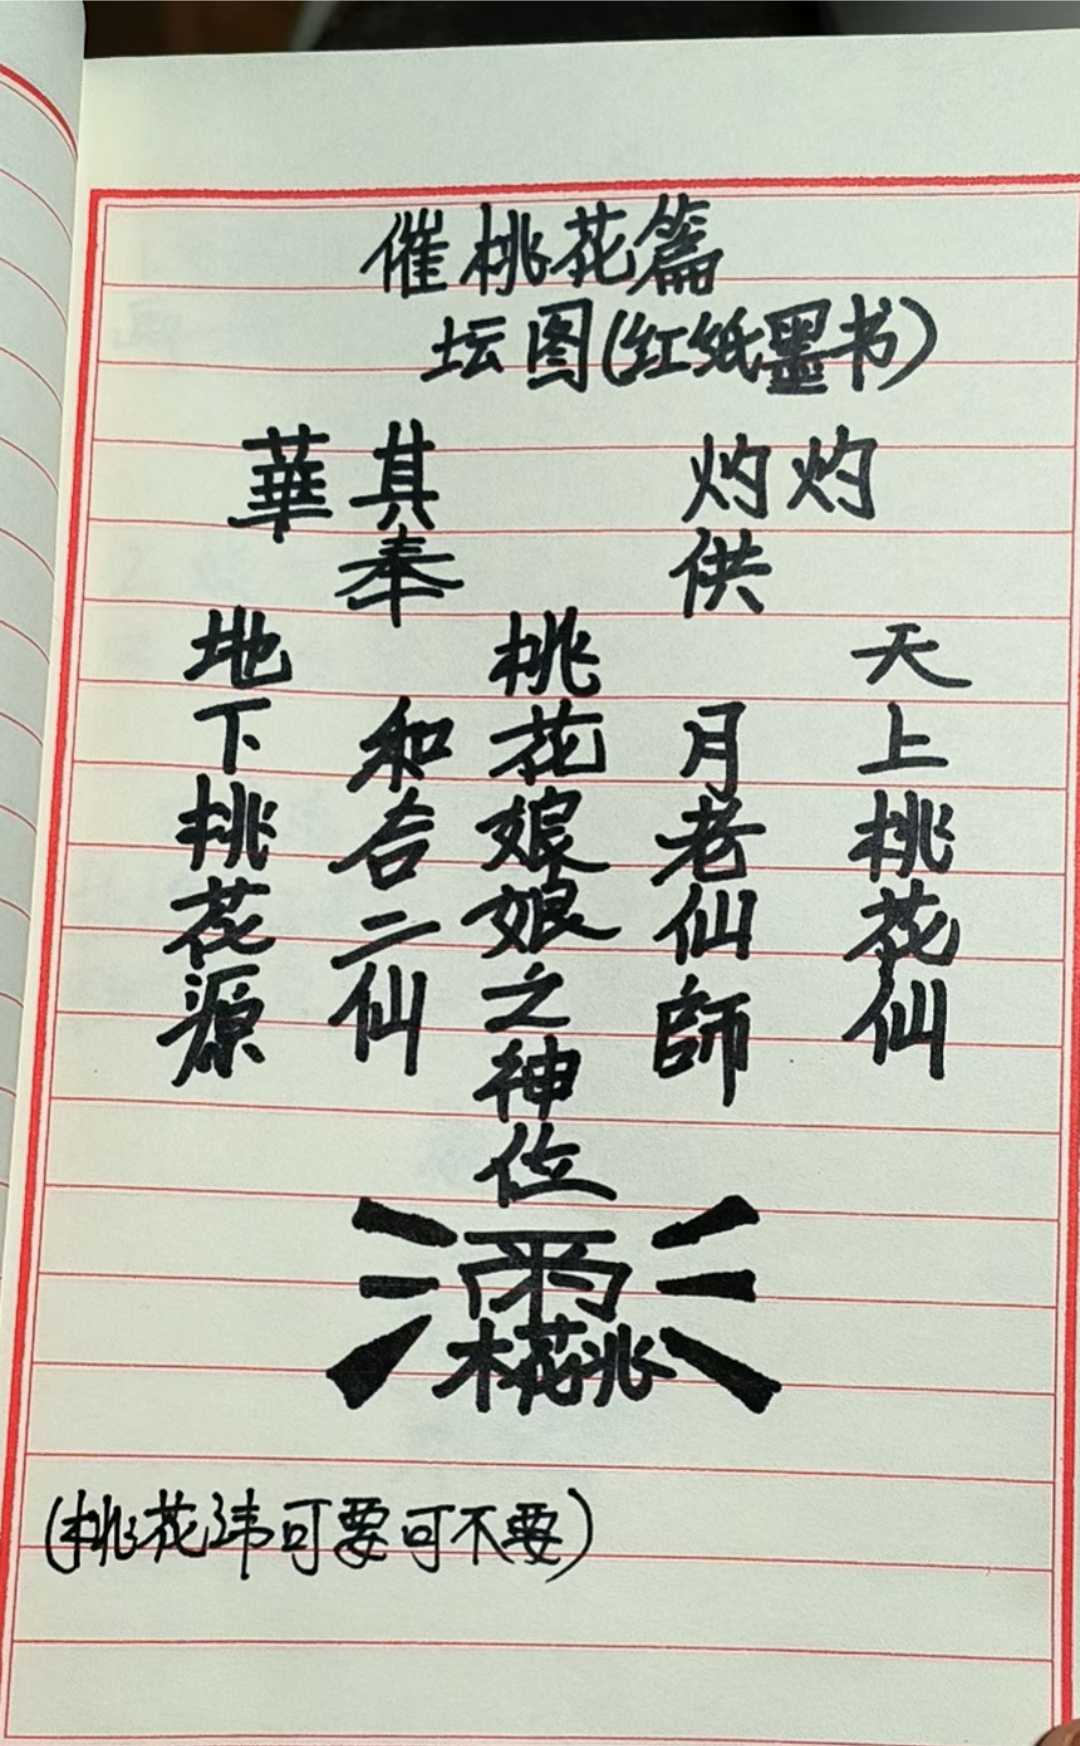 催桃花篇
坛图(红纸墨书)
灼灼
其華
供
奉
天上桃花仙
月老仙師
桃花娘娘之神位
和合二仙
地下桃花源
雨
木花兆
(桃花讳可要可不要)